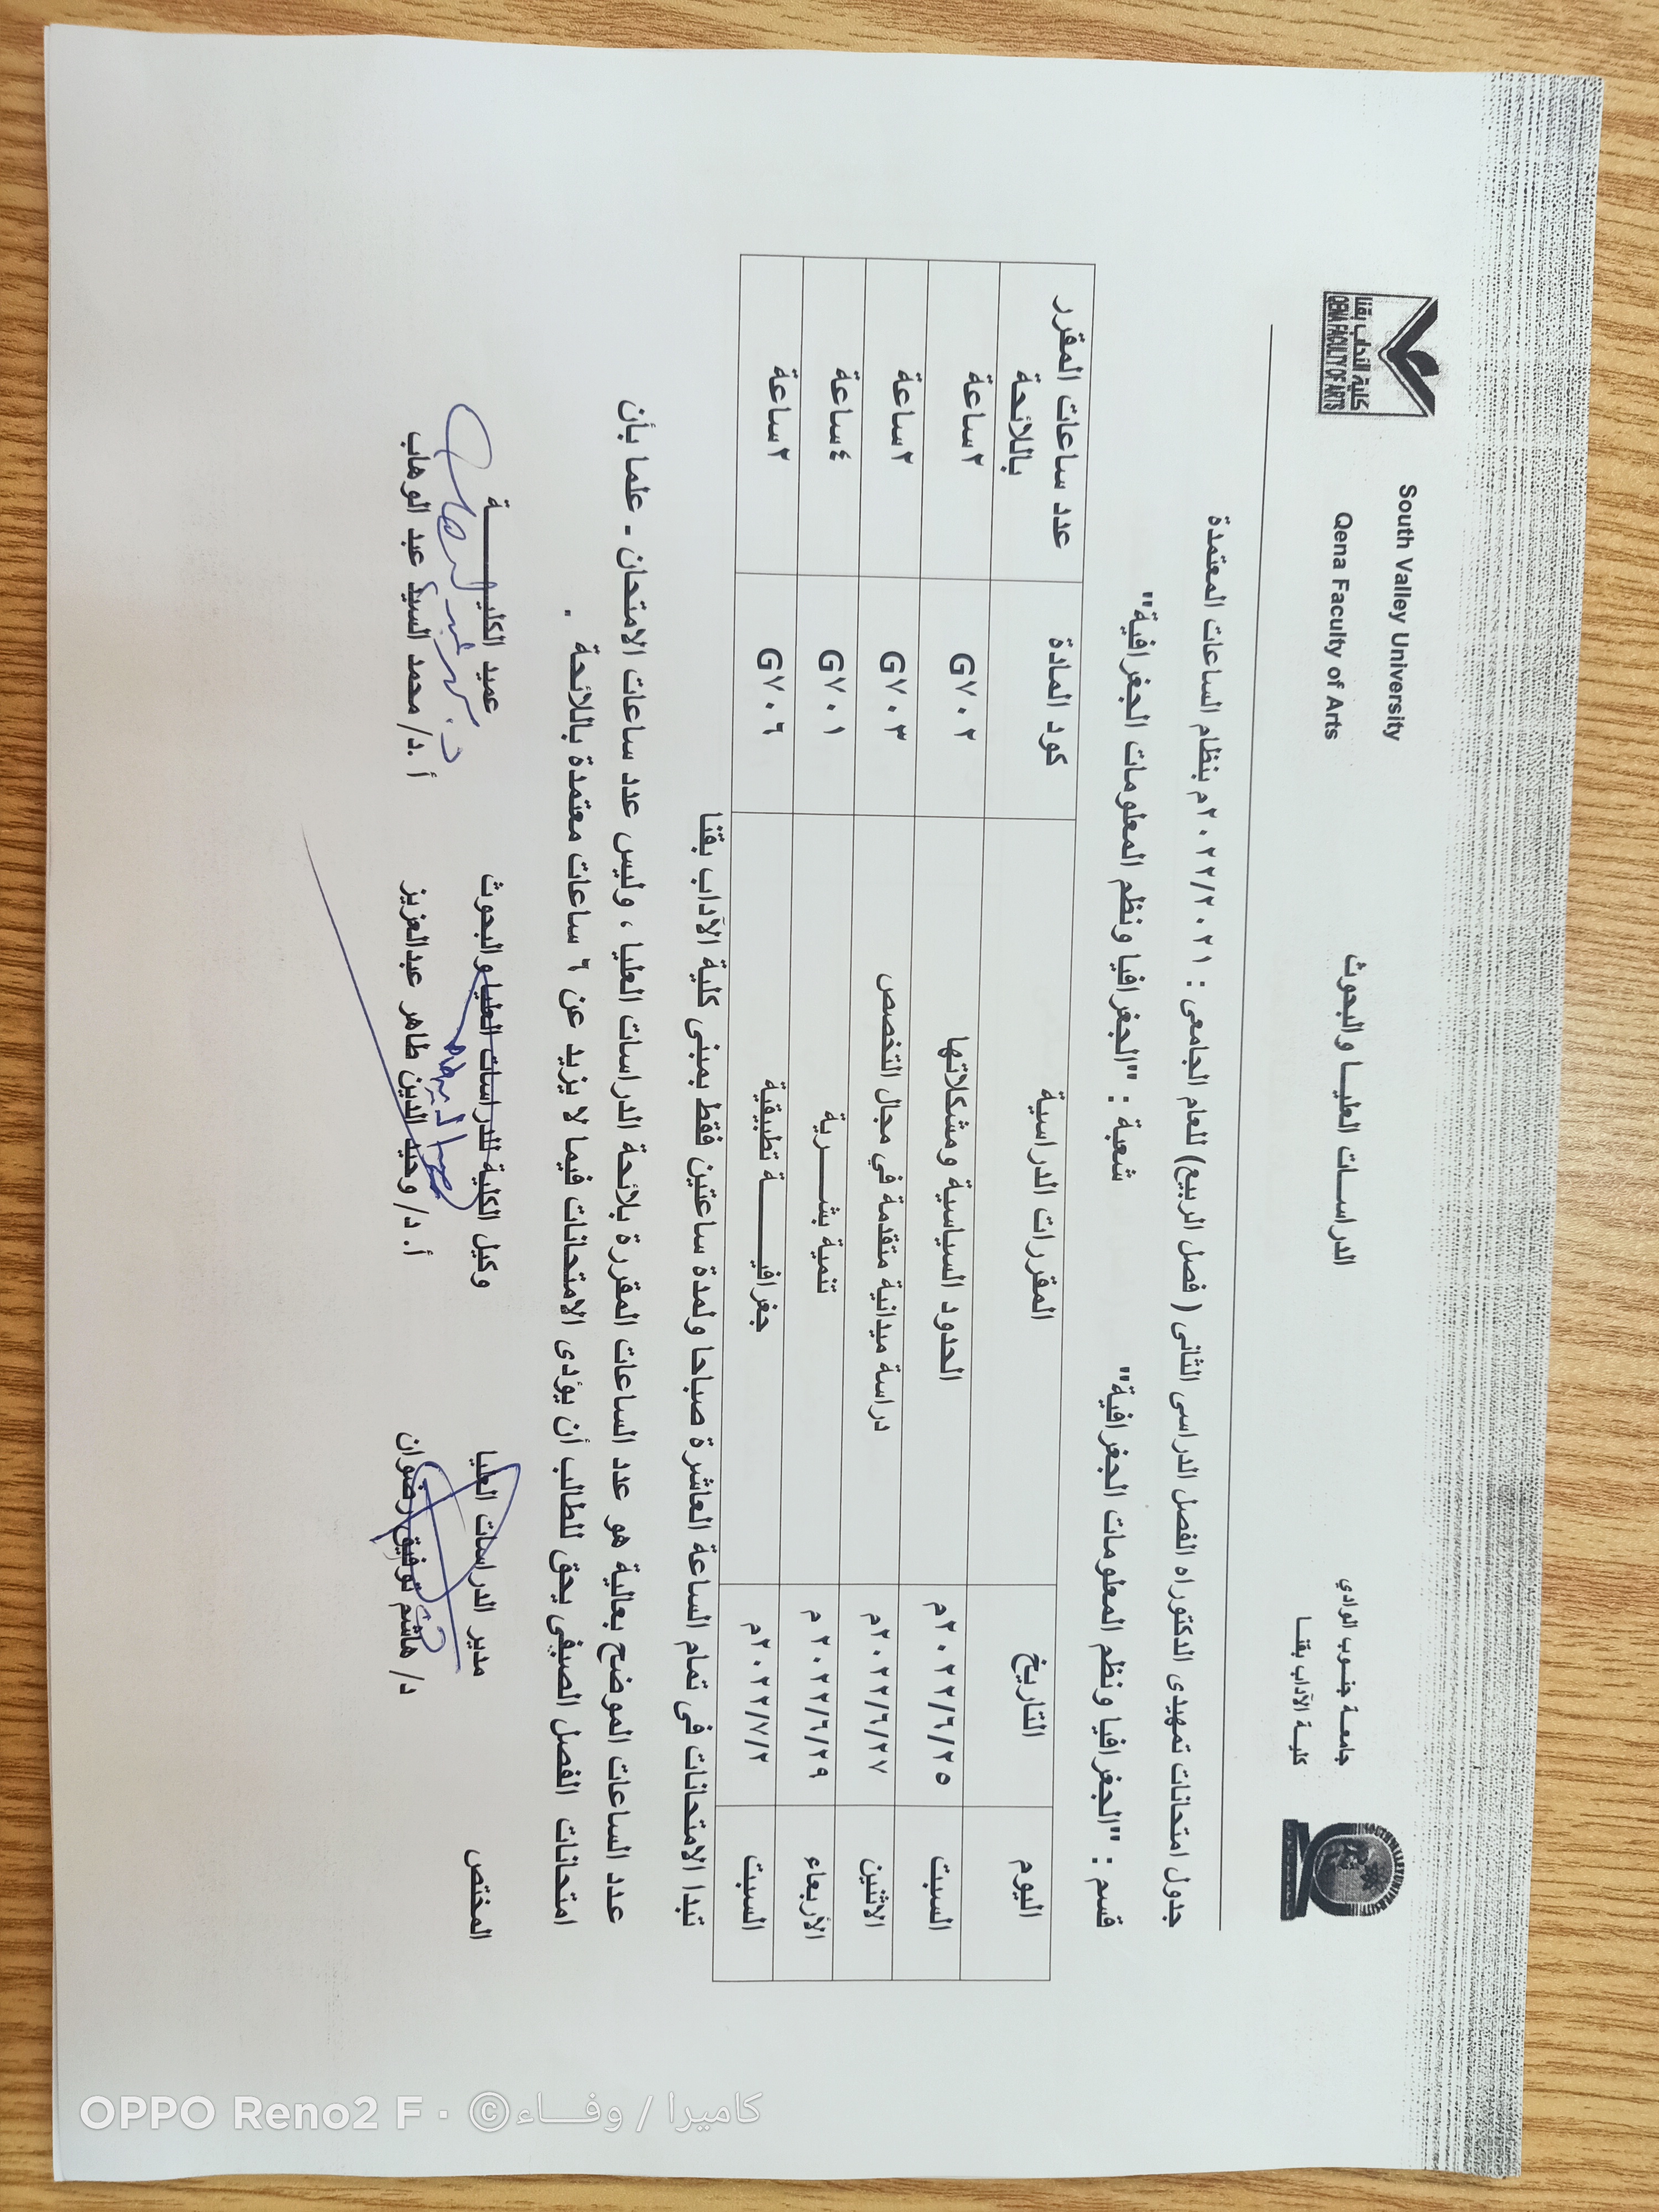 جامعـة جنـوب الوادي
كليـة الآداب بقنـا
الدراسـات العليـا والبحوث
South Valley University
Qena Faculty of Arts
كلية الآداب بقنا
QENA FACULTY OF ARTS
جدول امتحانات تمهيدى الدكتوراه الفصل الدراسى الثانى ( فصل الربيع) للعام الجامعى : ٢٠٢٢/٢٠٢١م بنظام الساعات المعتمدة
قسم : "الجغرافيا ونظم المعلومات الجغرافية" شعبة : "الجغرافيا ونظم المعلومات الجغرافية"
اليوم التاريخ المقررات الدراسية كود المادة عدد ساعات المقرر باللائحة
السبت ٢٠٢٢/٦/٢٥م الحدود السياسية ومشكلاتها G٧٠٢ ٢ساعة
الاثنين ٢٠٢٢/٦/٢٧م دراسة ميدانية متقدمة في مجال التخصص G٧٠٣ ٢ساعة
الأربعاء ٢٠٢٢/٦/٢٩م تنمية بشـــرية G٧٠١ ٤ساعة
السبت ٢٠٢٢/٧/٢م جغرافيـــــة تطبيقية G٧٠٦ ٢ساعة
تبدا الامتحانات فى تمام الساعة العاشرة صباحا ولمدة ساعتين فقط بمبنى كلية الآداب بقنا
عدد الساعات الموضح بعالية هو عدد الساعات المقررة بلائحة الدراسات العليا ، وليس عدد ساعات الامتحان - علما بأن
امتحانات الفصل الصيفى يحق للطالب أن يؤدى الامتحانات فيما لا يزيد عن ٦ ساعات معتمدة باللائحة .
المختص مدير الدراسات العليا وكيل الكلية للدراسات العليا والبحوث عميد الكليـــــــة
د/ هاشم توفيق رضوان أ. د/ وحيد الدين طاهر عبدالعزيز أ .د/ محمد السيد عبد الوهاب
OPPO Reno2 F · ©كاميرا / وفـــاء